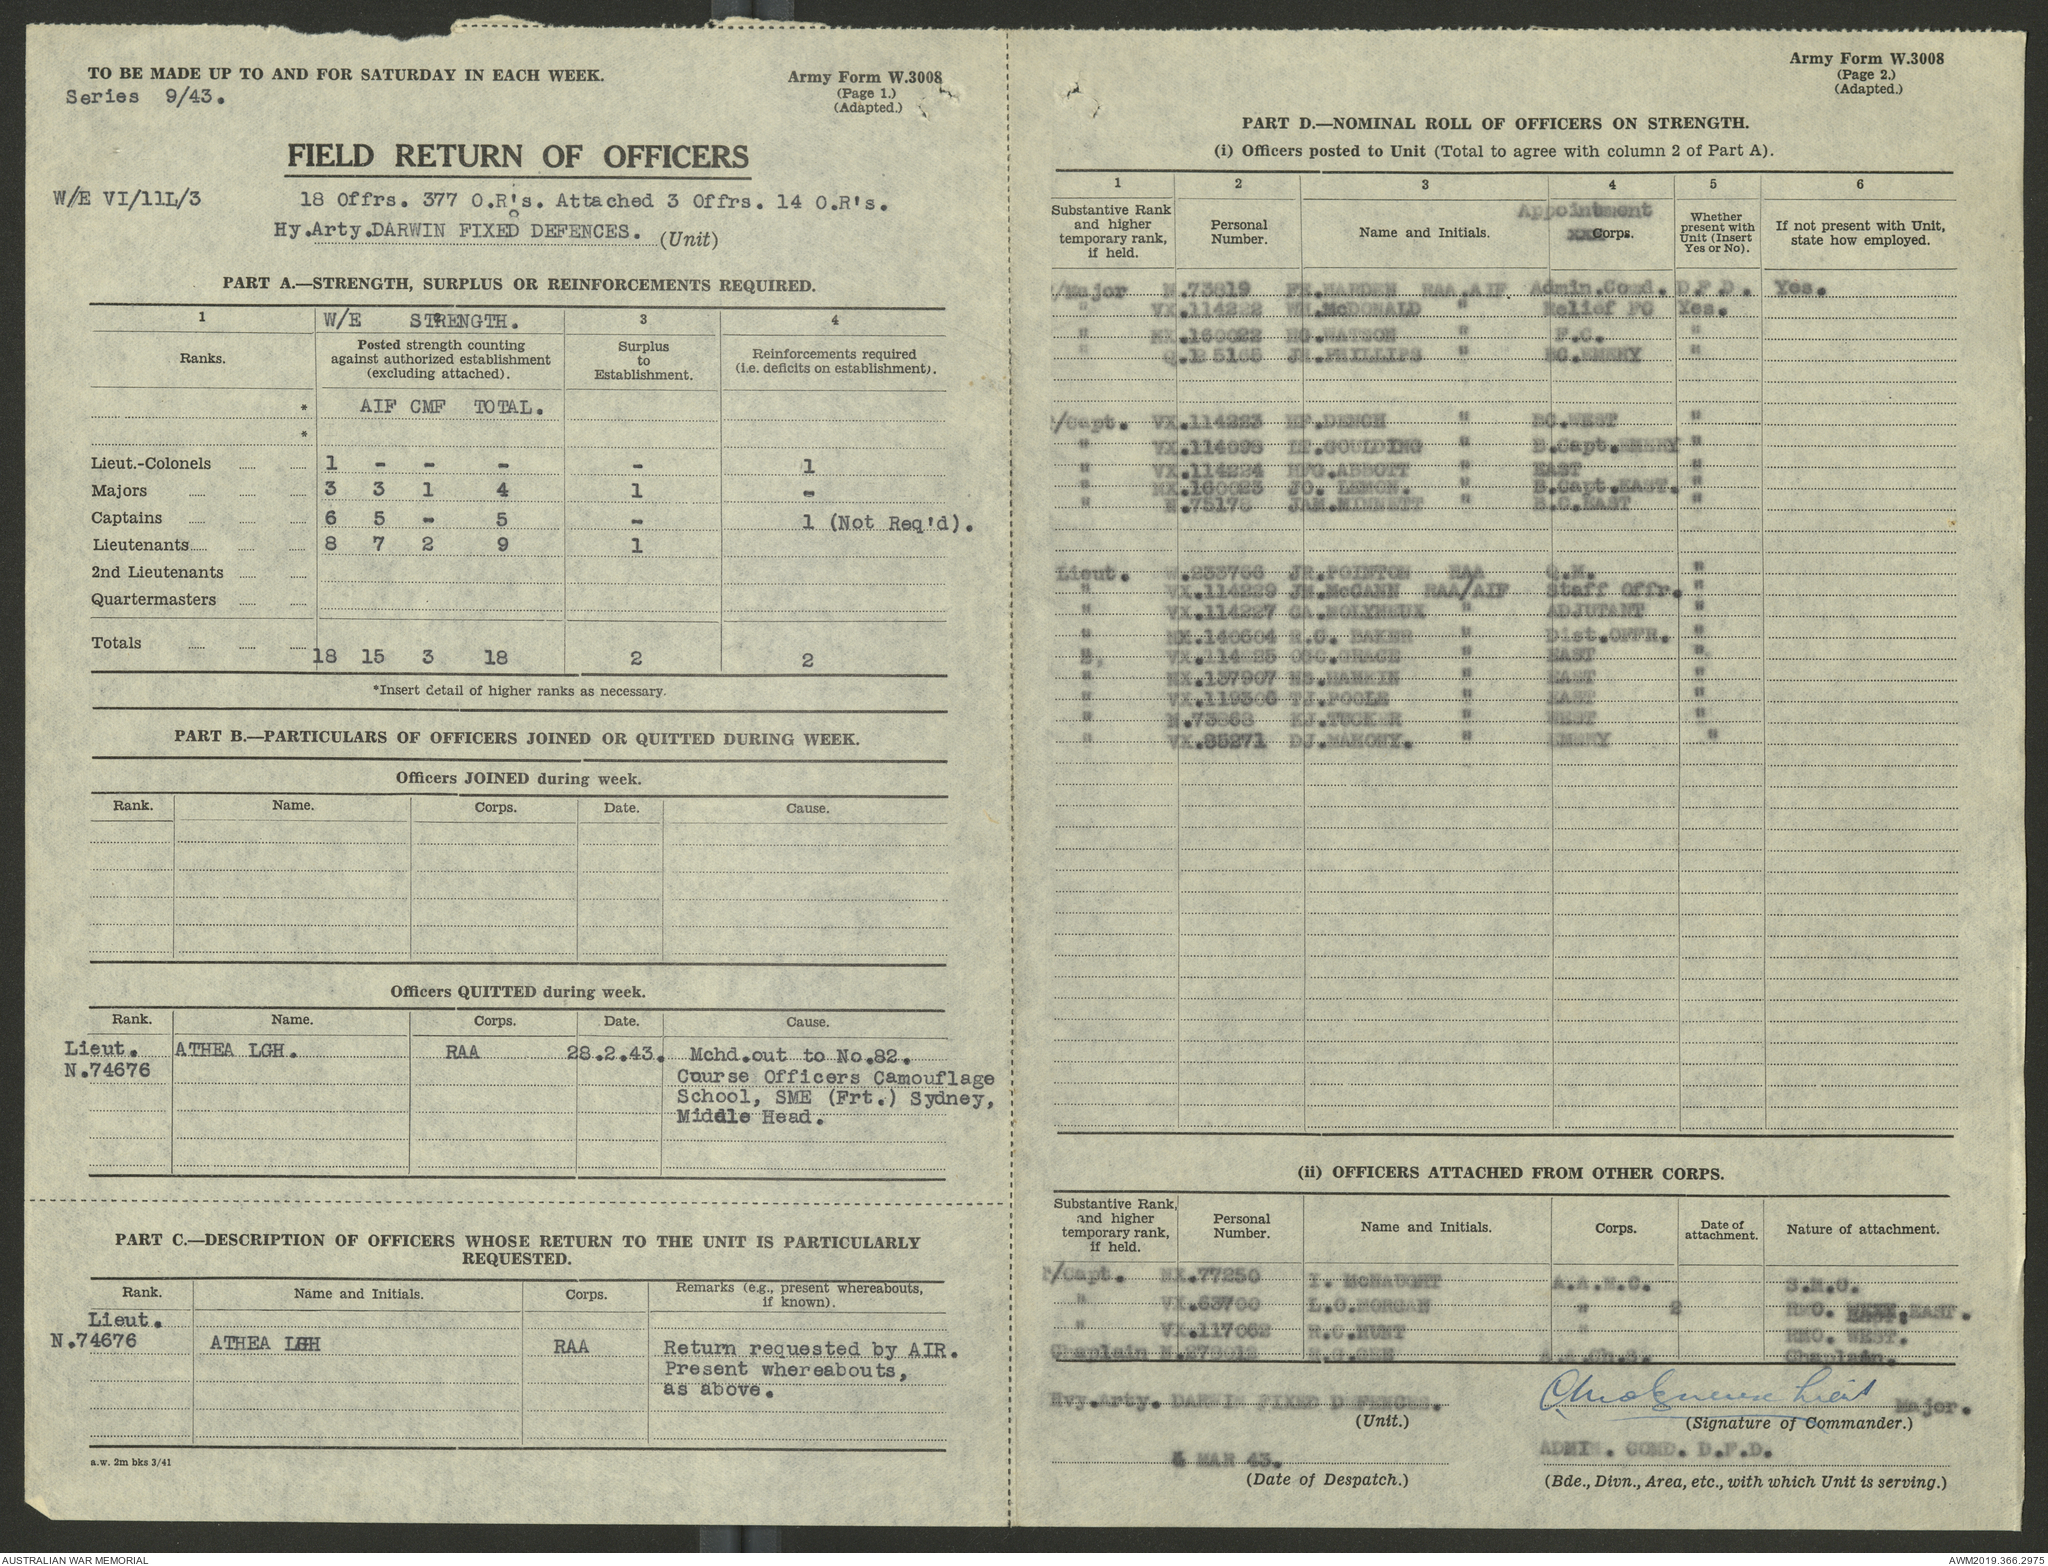 TO BE MADE UP TO AND FOR SATURDAY IN EACH WEEK.
Series 9/43.
Army Form W.3008
(Page 1.)
(Adapted.)
FIELD RETURN OF OFFICERS
W/E VI/11L/3 18 Offrs. 377 O.R's. Attached 3 Offrs. 14 O.R's.
Hy.Arty.DARWIN FIXED DEFENCES. (Unit)
PART A.—STRENGTH, SURPLUS OR REINFORCEMENTS REQUIRED.
1 W/E STRENGTH. 3 4
Ranks. Posted strength counting against authorized establishment (excluding attached). Surplus to Establishment. Reinforcements required (i.e. deficits on establishment).
* AIF CMF TOTAL.
*
Lieut.-Colonels 1 - - - - 1
Majors 3 3 1 4 1 -
Captains 6 5 - 5 - 1 (Not Req'd).
Lieutenants 8 7 2 9 1
2nd Lieutenants
Quartermasters
Totals 18 15 3 18 2 2
*Insert detail of higher ranks as necessary.
PART B.—PARTICULARS OF OFFICERS JOINED OR QUITTED DURING WEEK.
Officers JOINED during week.
Rank. Name. Corps. Date. Cause.
Officers QUITTED during week.
Rank. Name. Corps. Date. Cause.
Lieut. ATHEA LGH. RAA 28.2.43. Mchd.out to No.82.
N.74676 Course Officers Camouflage
School, SME (Frt.) Sydney,
Middle Head.
PART C.—DESCRIPTION OF OFFICERS WHOSE RETURN TO THE UNIT IS PARTICULARLY
REQUESTED.
Rank. Name and Initials. Corps. Remarks (e.g., present whereabouts, if known).
Lieut.
N.74676 ATHEA LGH RAA Return requested by AIR.
Present whereabouts,
as above.
a.w. 2m bks 3/41
Army Form W.3008
(Page 2.)
(Adapted.)
PART D.—NOMINAL ROLL OF OFFICERS ON STRENGTH.
(i) Officers posted to Unit (Total to agree with column 2 of Part A).
1 2 3 4 5 6
Substantive Rank and higher temporary rank, if held. Personal Number. Name and Initials. Appointment Corps. Whether present with Unit (Insert Yes or No). If not present with Unit, state how employed.
/Major N.73819 HARDEN RAA.AIF Admin.Comd. D.F.D. Yes.
" VX.114222 McDONALD " Relief FC Yes.
" NX.160022 HG.WATSON " F.C. "
" JR.PHILLIPS " BC.EMERY "
/Capt. VX.114223 HF.DENCH " BC.WEST "
" VX.114098 LT.GOULDING " B.Capt.EMERY "
" VX.114224 ABBOTT " EAST "
" NX.160023 JO. LEMON. " B.Capt.EAST. "
" N.75178 JAM.MINNETT " B.C.EAST "
Lieut. JR.POINTON RAA Q.M. "
" VX.114229 McCANN RAA/AIF Staff Offr. "
" VX.114227 CA.MOLYNEUX " ADJUTANT "
" NX.140604 R.G. BAKER " Dist.OFFR. "
GRACE " EAST "
" NX.137907 RANKIN " EAST "
" VX.119306 TJ.POOLE " EAST "
" N.73868 KJ.TUCKER " WEST "
" VX.85271 DJ.MAHONY. " EMERY "
(ii) OFFICERS ATTACHED FROM OTHER CORPS.
Substantive Rank, and higher temporary rank, if held. Personal Number. Name and Initials. Corps. Date of attachment. Nature of attachment.
/Capt. NX.77250 I. McNAUGHT A.A.M.C. S.M.O.
" VX.63700 L.O.MORGAN " 2 RMO. EAST.
" VX.117062 R.C.HUNT " RMO. WEST.
Chaplain A.A.Ch.S. Chaplain.
Hvy.Arty. DARWIN FIXED DEFENCES. Lieut Major.
(Unit.) (Signature of Commander.)
MAR 43. ADMIN. COMD. D.F.D.
(Date of Despatch.) (Bde., Divn., Area, etc., with which Unit is serving.)
AUSTRALIAN WAR MEMORIAL AWM2019.366.2975